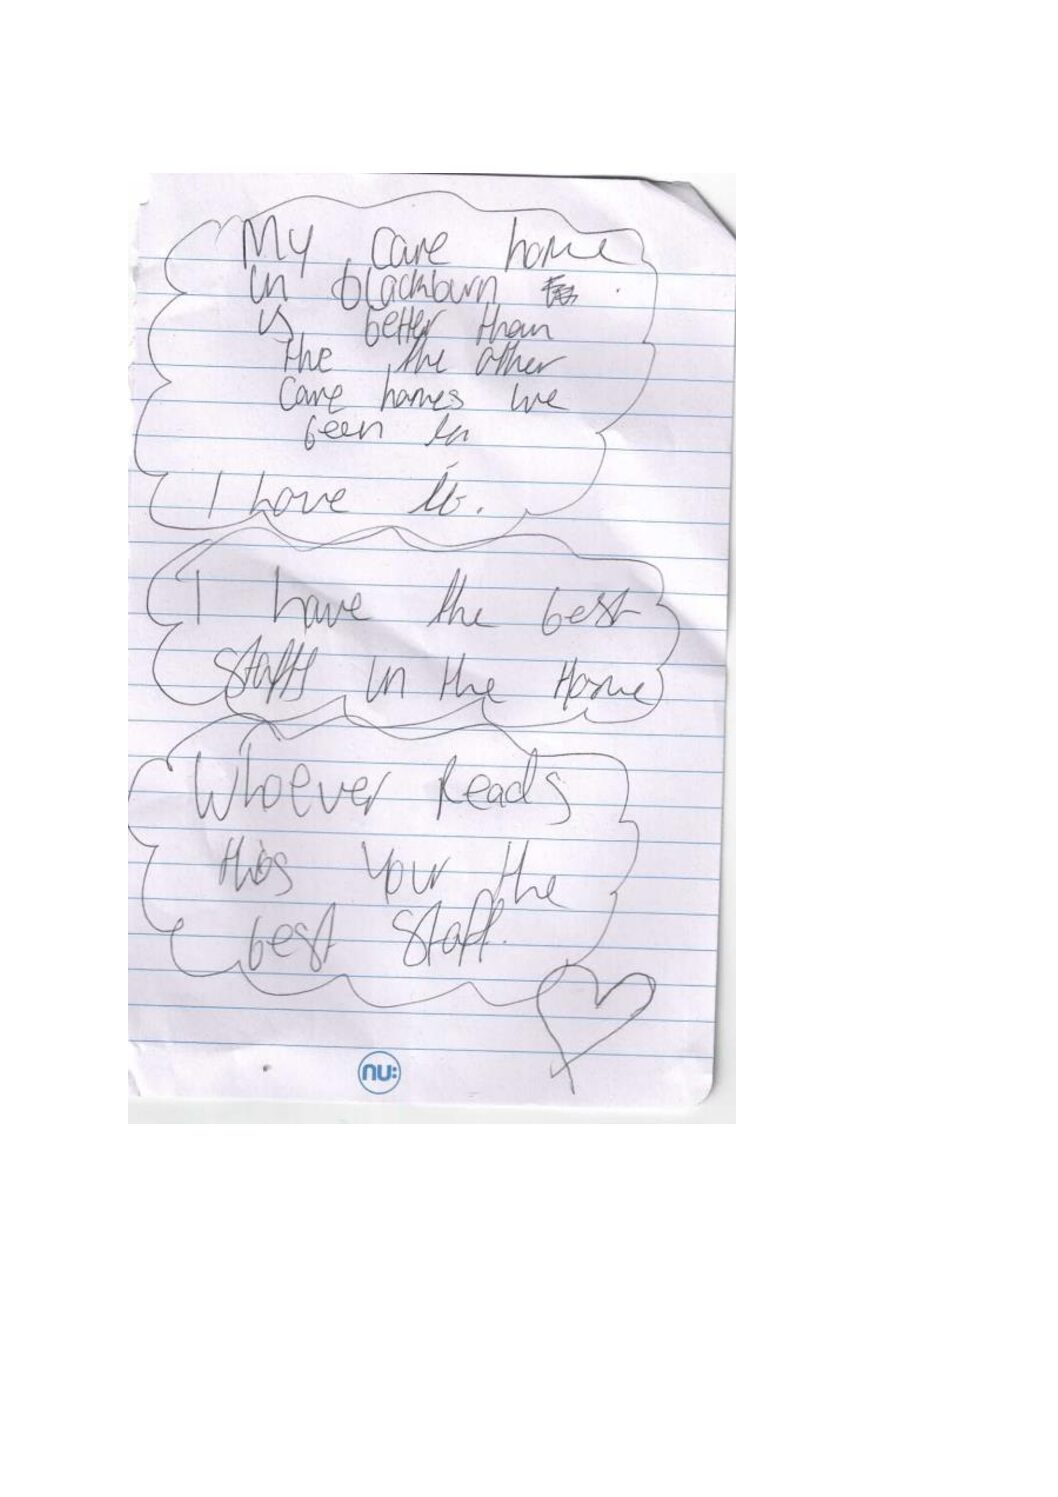 My care home
in blackburn
is better than
the the other
care homes ive
been in
I love it.
I have the best
staff in the Home
Whoever Reads
this your the
best staff.
nu: